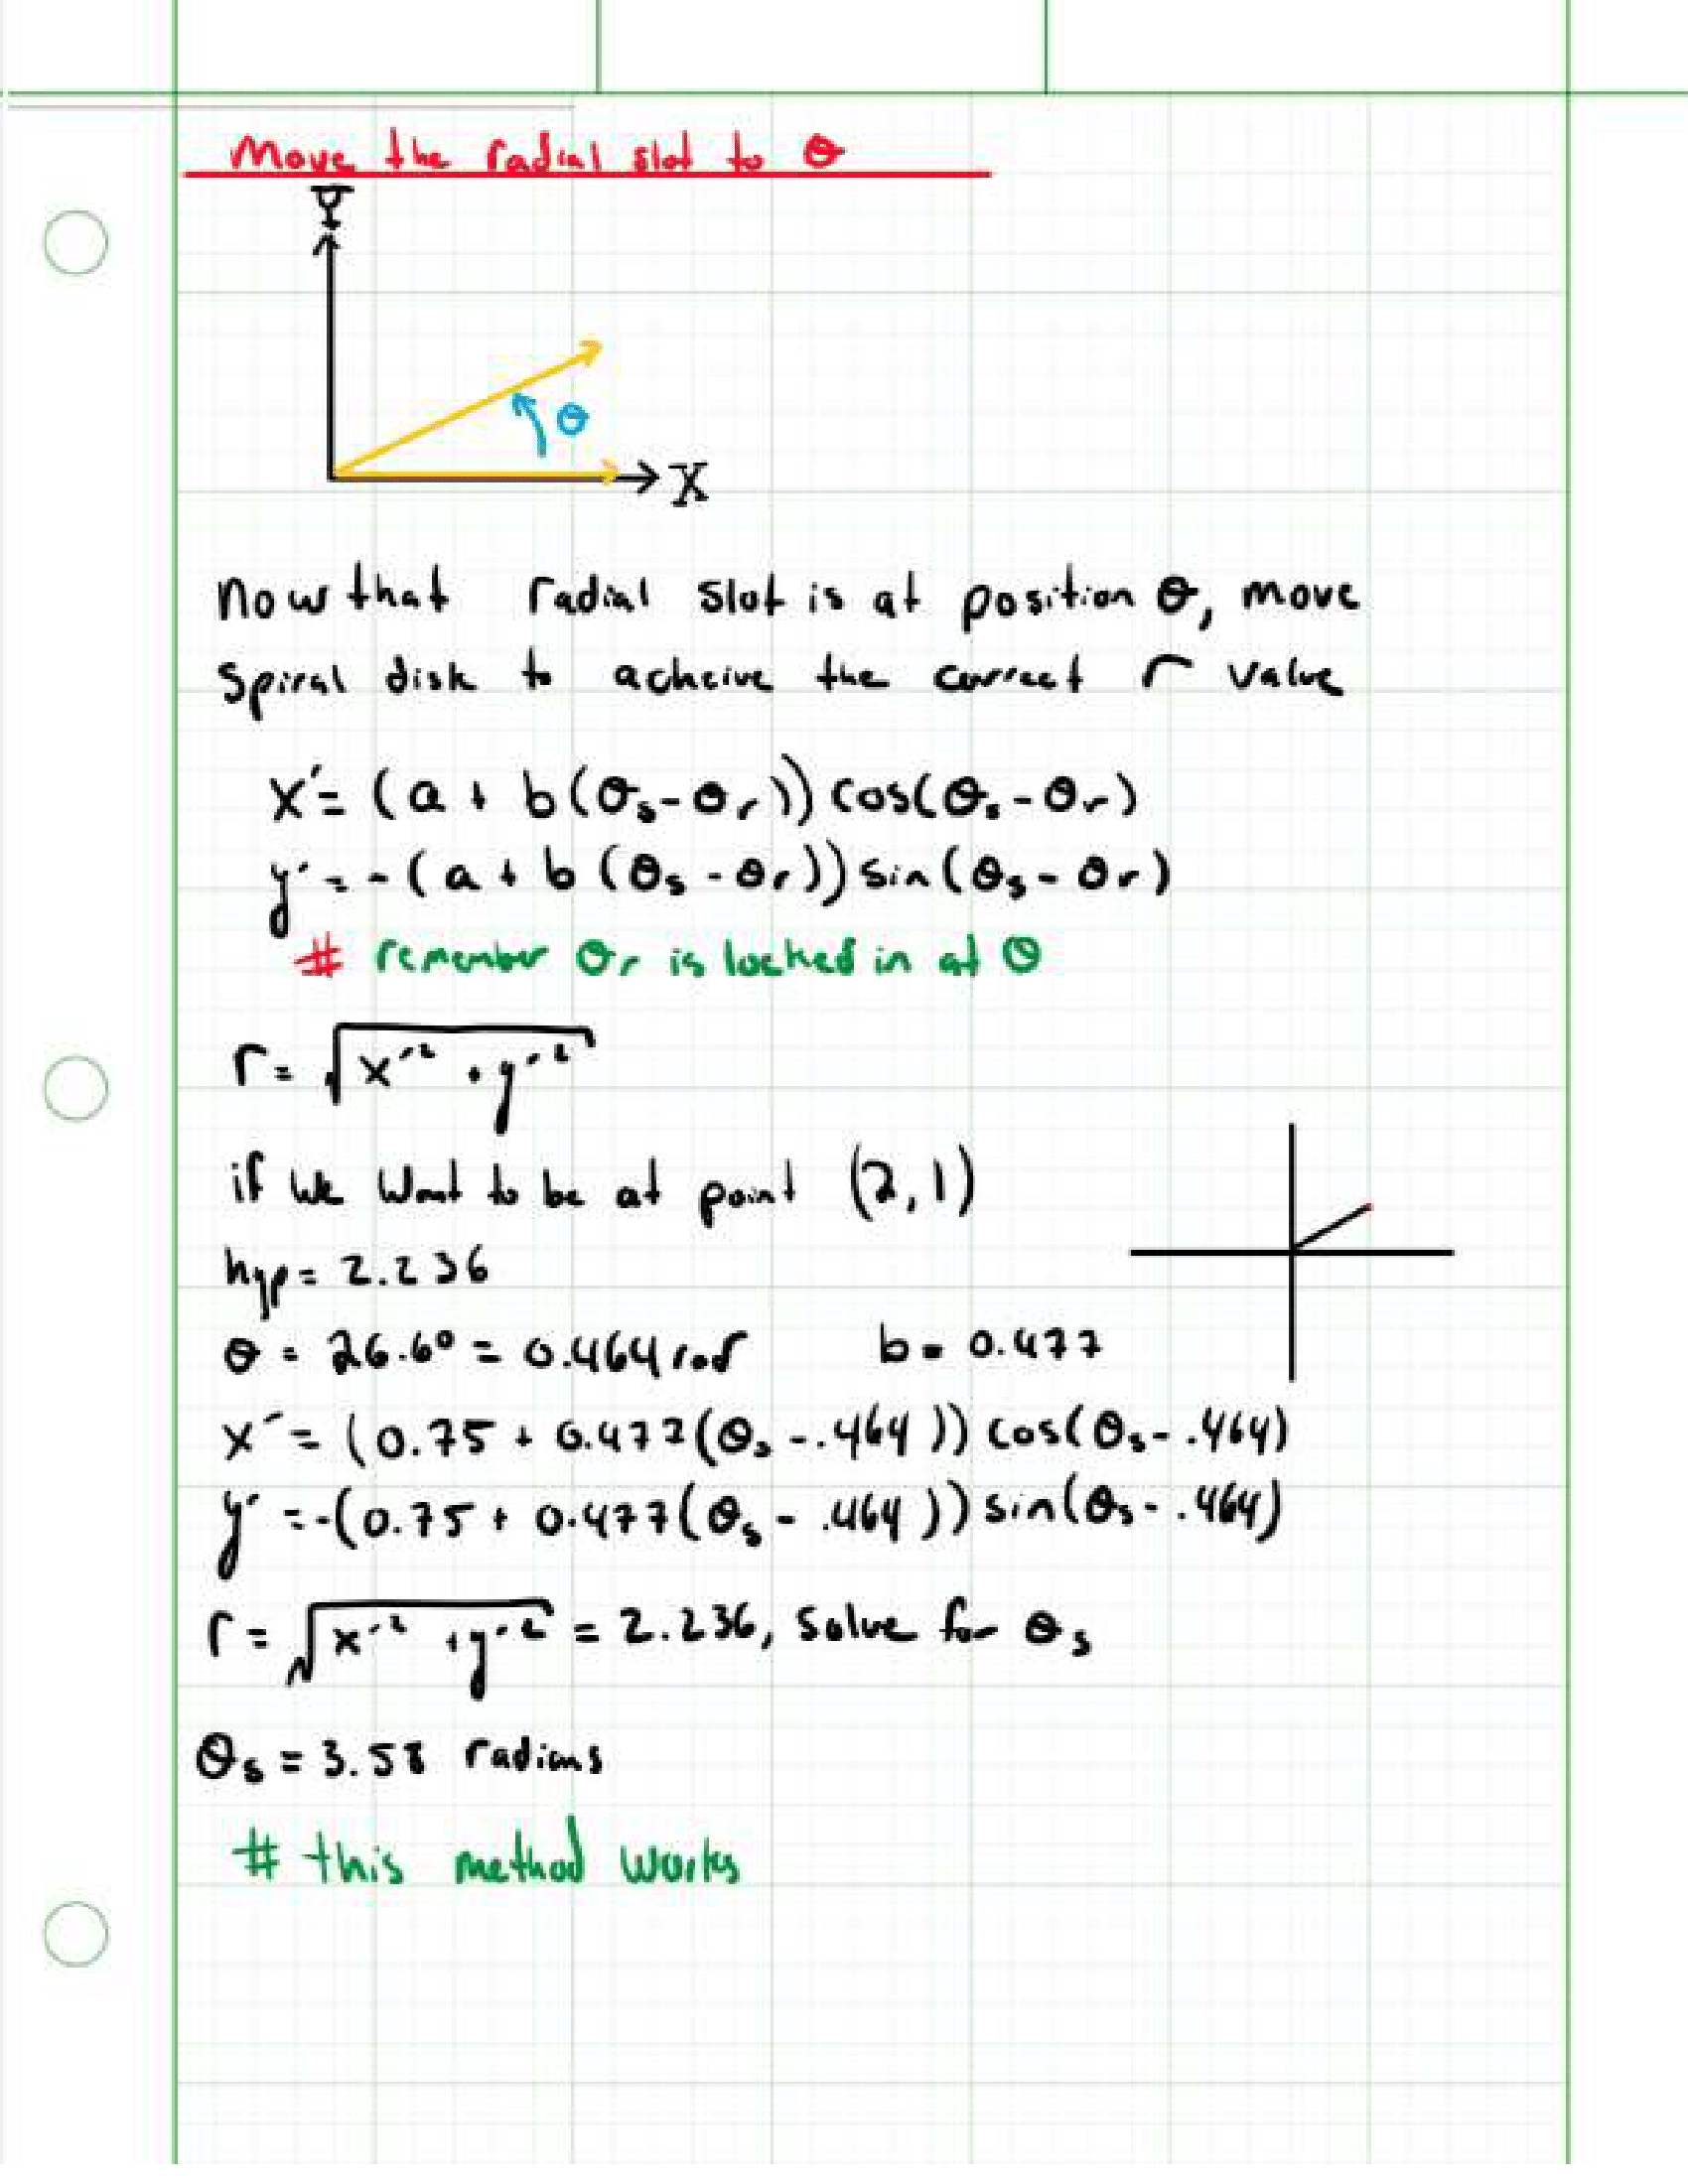 Move the radial slot to θ
Y
θ
X
Now that radial slot is at position θ, move
spiral disk to acheive the correct r value
x' = (a + b(θs - θr)) cos(θs - θr)
y' = -(a + b(θs - θr)) sin(θs - θr)
# remember θr is locked in at θ
r = √(x'² + y'²)
if we want to be at point (2,1)
hyp = 2.236
θ = 26.6° = 0.464 rad b = 0.477
x' = (0.75 + 0.477(θs - .464)) cos(θs - .464)
y' = -(0.75 + 0.477(θs - .464)) sin(θs - .464)
r = √(x'² + y'²) = 2.236, solve for θs
θs = 3.58 radians
# this method works